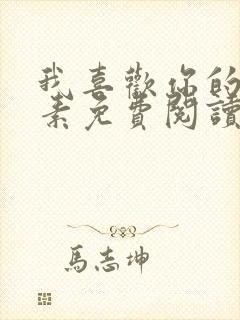 我喜歡你的
素免費閱讀
馬志坤